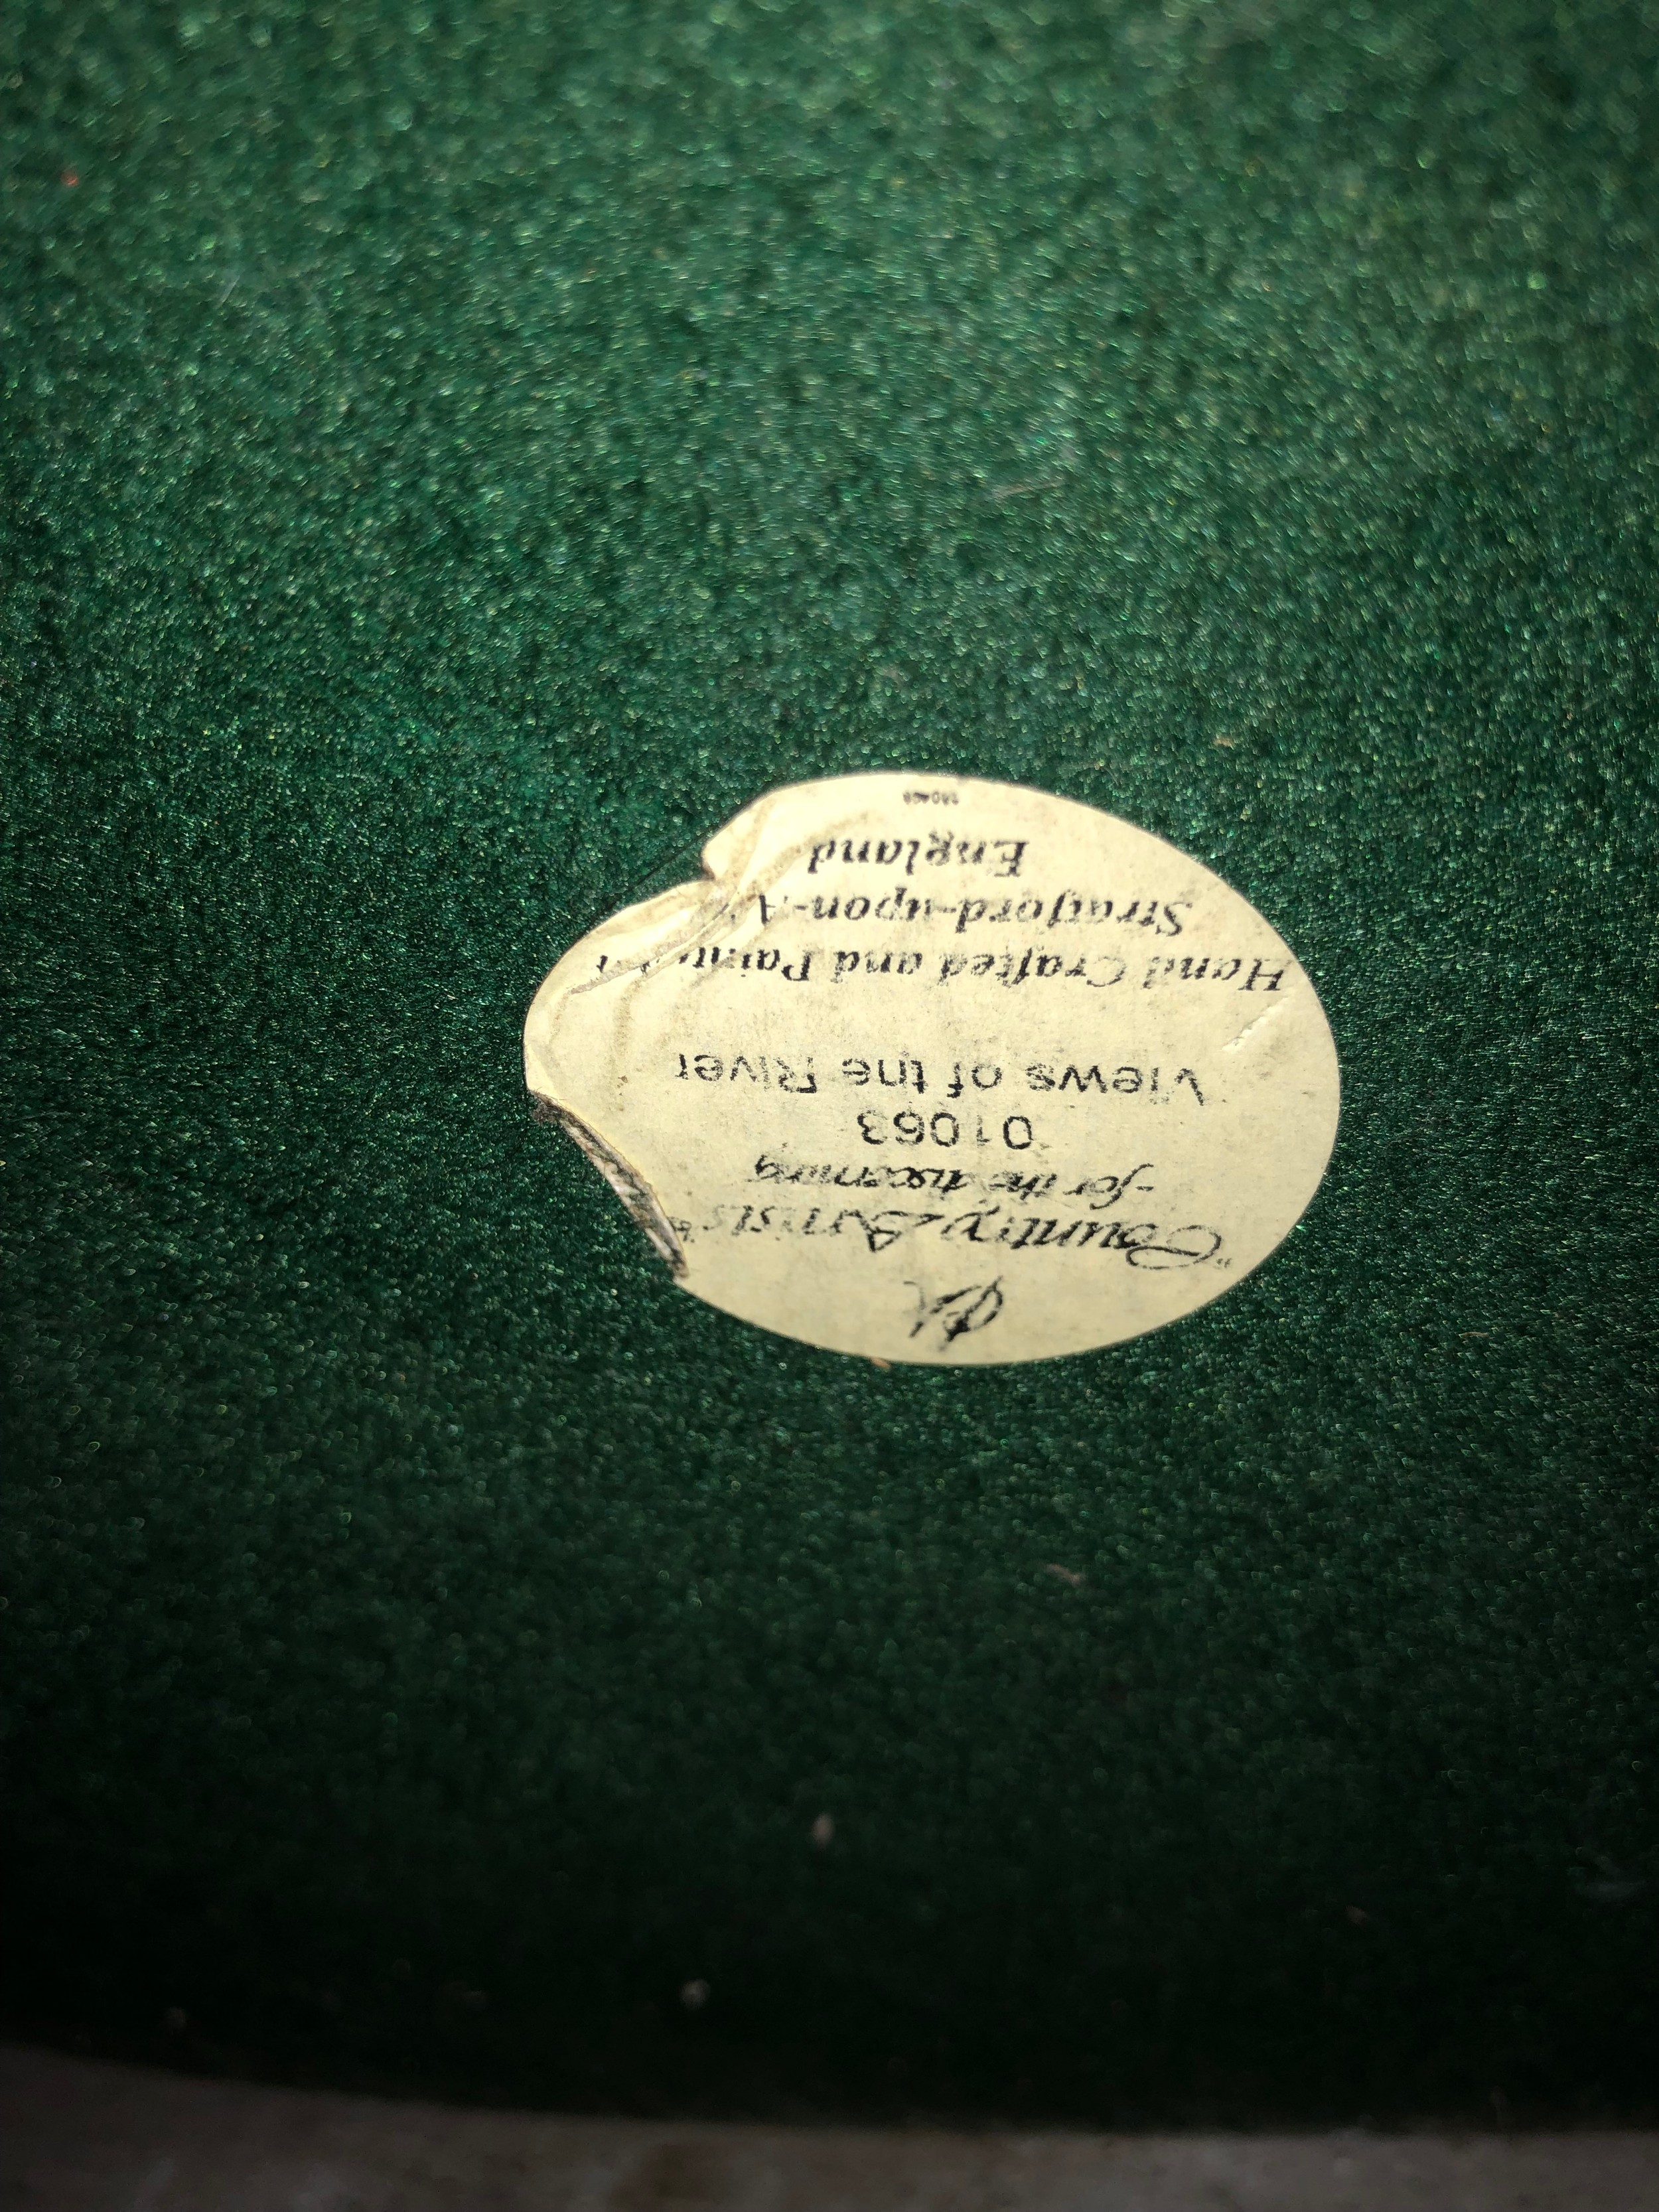 CA
"Country Artists"®
-for the discerning
01063
Views of the River
Hand Crafted and Painted
Stratford-upon-A
England